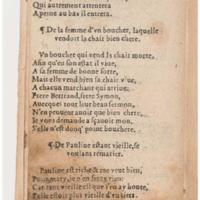 Qui autrement attentera
A peine au bas il entrera.
¶ De la femme d'vn boucher, laquelle
vendoit la chair bien chere.
Vn boucher qui vend sa chair morte,
Afin qu'en son estat il viue,
A sa femme de bonne sorte,
Mais elle vend bien sa chair viue,
A chacun marchant qui arriue:
Pierre Bertrand, frere Symon,
Auecques tout leur beau sermon,
N'en peuuent auoir que bien chere,
Je vous demande a sçauoir mon,
S'elle n'est donq' point bouchere.
¶ De Pauline estant vieille, se
voulant remarier.
Pauline est riche & me veut bien,
Pour mary, je n'en feray rien:
Car tant vieille est que j'en ay honte,
S'elle estoit plus vieille d'vn tiers